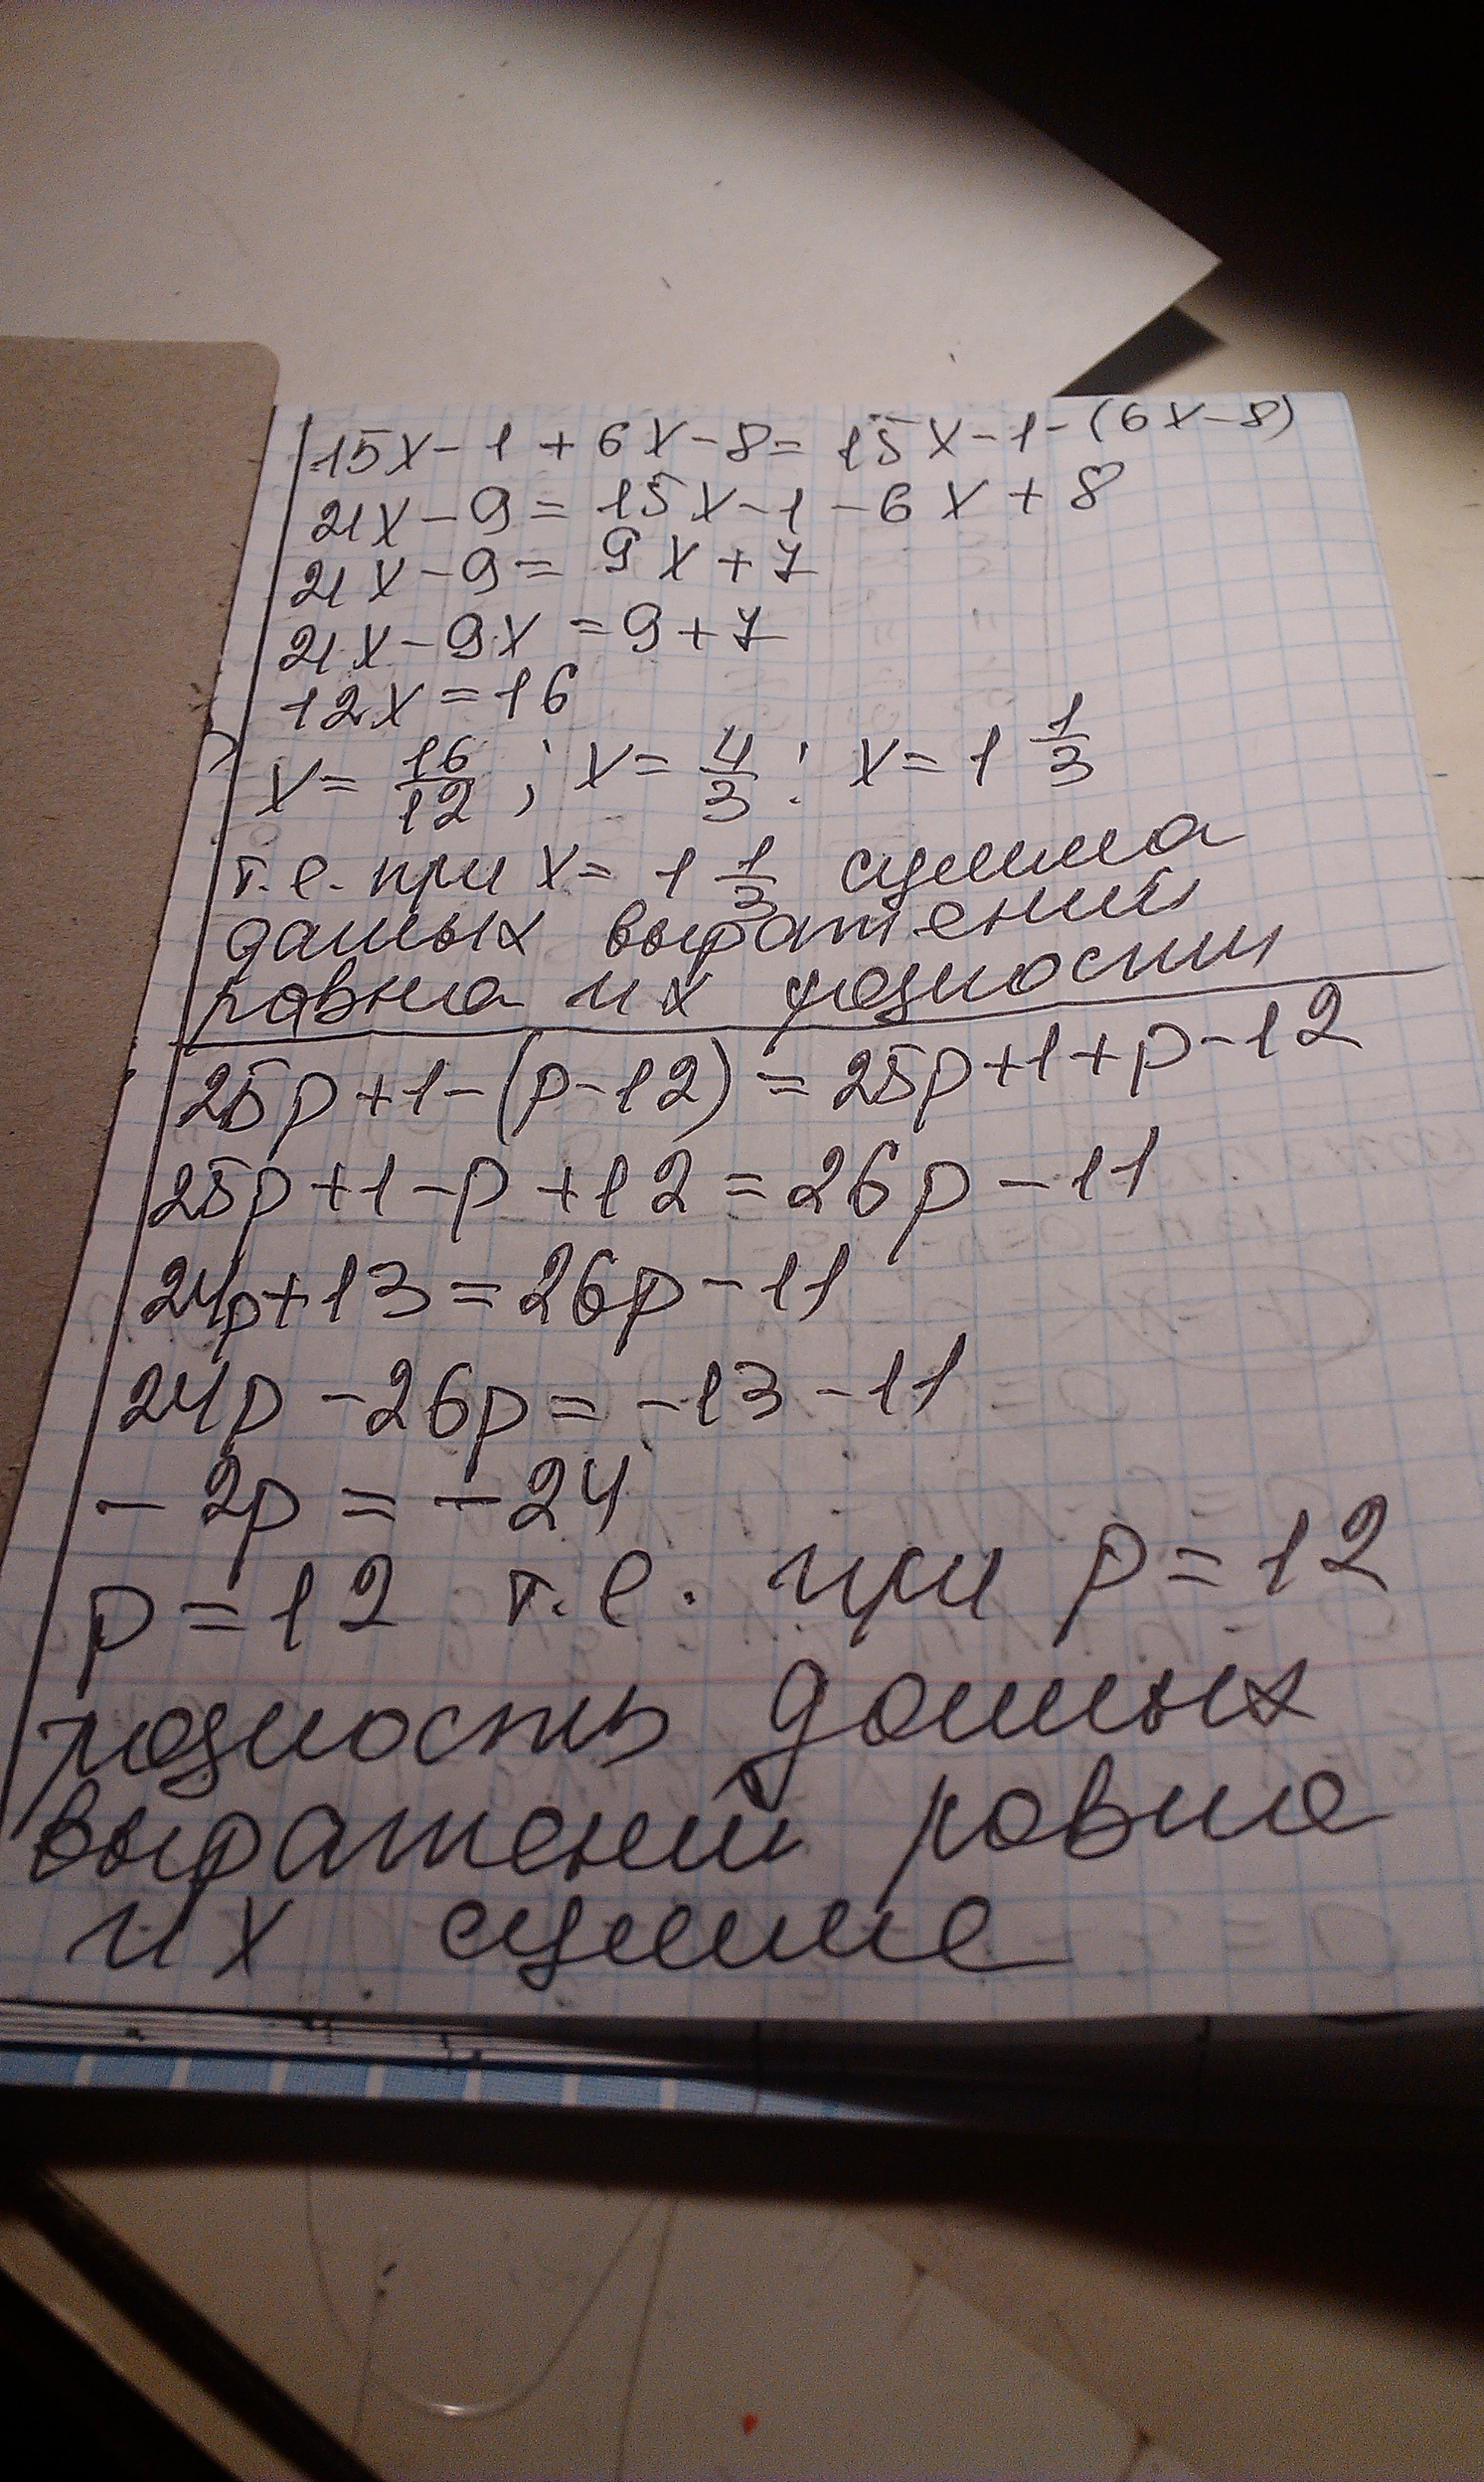 15x - 1 + 6x - 8 = 15x - 1 - (6x - 8)
21x - 9 = 15x - 1 - 6x + 8
21x - 9 = 9x + 7
21x - 9x = 9 + 7
12x = 16
x = 16/12 ; x = 4/3 ; x = 1 1/3
т.е. при x = 1 1/3 сумма
данных выражений
равна их разности
25p + 1 - (p - 12) = 25p + 1 + p - 12
25p + 1 - p + 12 = 26p - 11
24p + 13 = 26p - 11
24p - 26p = -13 - 11
- 2p = - 24
p = 12 т.е. при p = 12
разность данных
выражений равна
их сумме